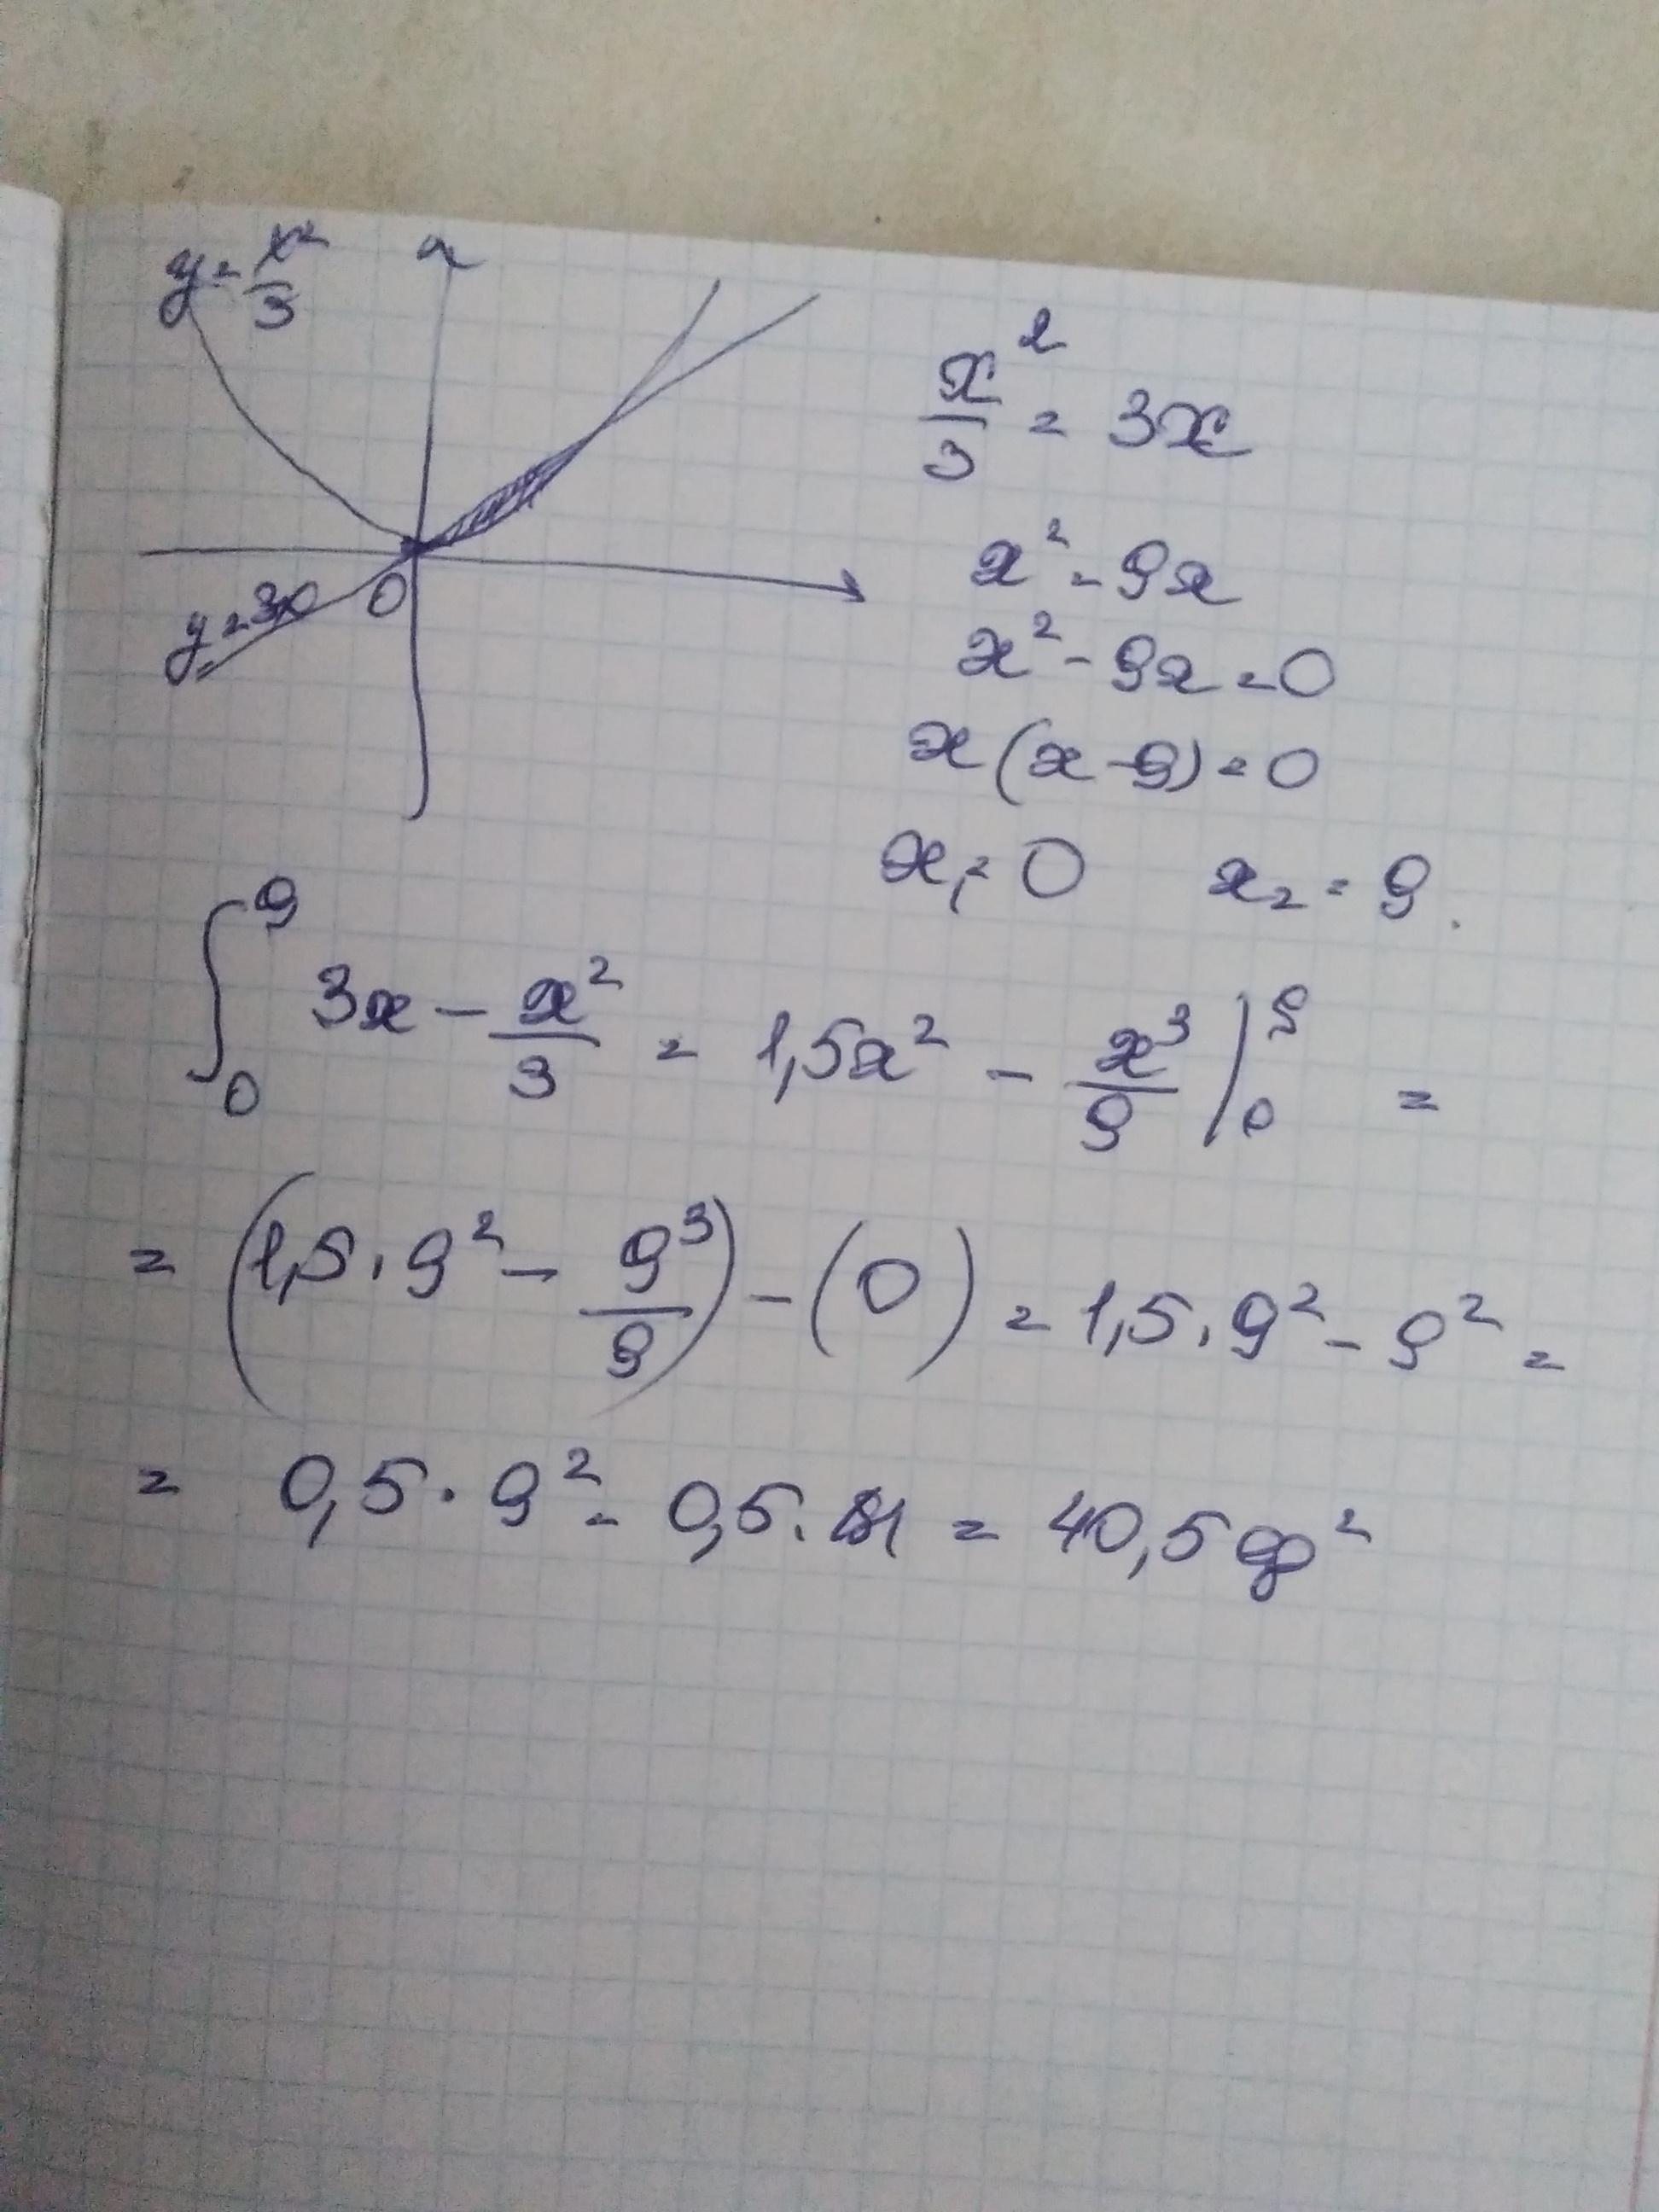 y = x²/3
x²/3 = 3x
x² = 9x
y = 3x 0
x² - 9x = 0
x (x - 9) = 0
x₁ = 0 x₂ = 9.
∫₀⁹ 3x - x²/3 = 1,5x² - x³/9 |₀⁹ =
= (1,5 · 9² - 9³/9) - (0) = 1,5 · 9² - 9² =
= 0,5 · 9² = 0,5 · 81 = 40,5